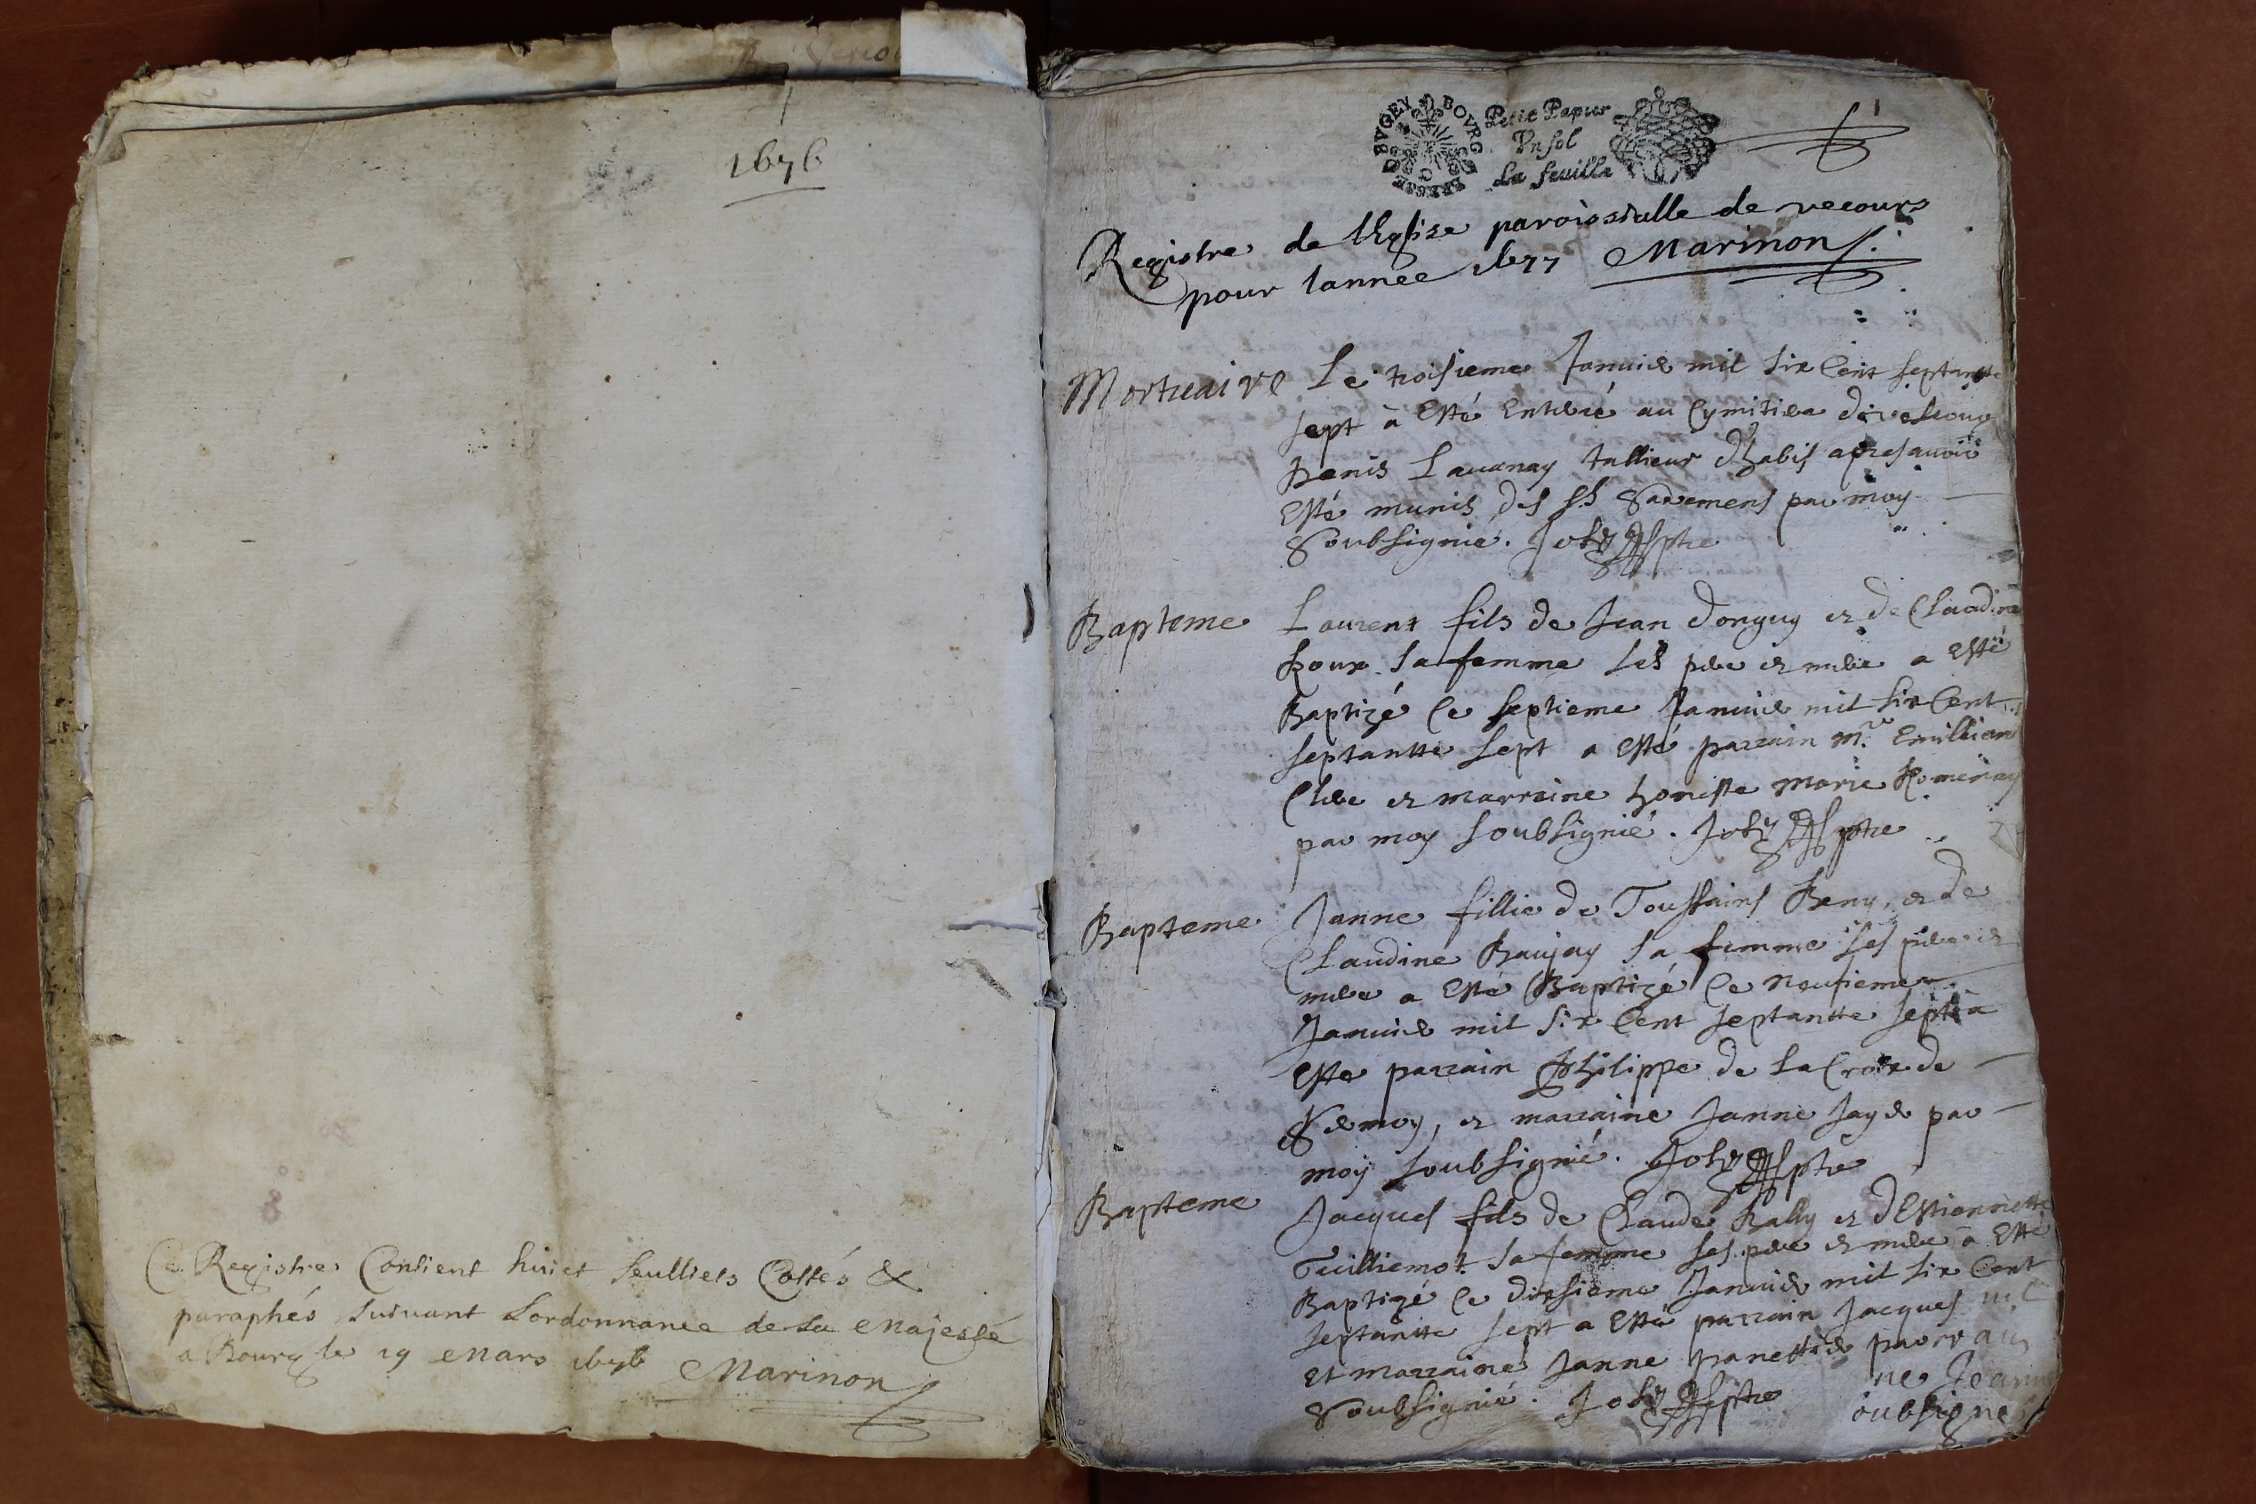 1676
Ce Registre Contient huict feulliets Cottés &
paraphés suivant Lordonnance de Sa Majesté
a Bourg le 19 Mars 1676 Marinon
BVGEY BOVRG
Petit Papier
Vn sol
La feuille
1
Registre de lEglise paroissialle de vecours
pour lannee 1677 Marinon
Mortuaire Le troisieme Januier mil six Cent septante
sept à Esté Enterré au Cymitiere de vescours
Denis Lauanay tallieur dhabis apres auoir
Esté munis des ss Sacremens par moy
Soubsignié. Joly ptre
Bapteme Laurent fils de Jean donguy et de Claudine
Roux sa femme ses pere et mere a Esté
Baptizé Ce septieme Januier mil six Cent
septantte sept a Esté parrain Mre Emillian
Clere et marraine honeste Marie Romenay
par moy soubsignié. Joly ptre
Bapteme Janne fillie de Toussains Beny, et de
Claudine Baujay sa femme ses pere et
mere a Esté Baptizé Ce neufieme
Januier mil six Cent septantte sept a
Esté parrain Philippe de La Croix de
Sermoy, et marraine Janne Jayer par
moy soubsignié. Joly ptre
Bapteme Jacques fils de Claude Rally et dEstiennette
Tuilliemot sa femme ses pere et mere à Esté
Baptizé Ce dixsieme Januier mil six Cent
septantte sept a Esté parrain Jacques
et marraine Janne panettier par
Soubsignié. Joly ptre
oubsigne